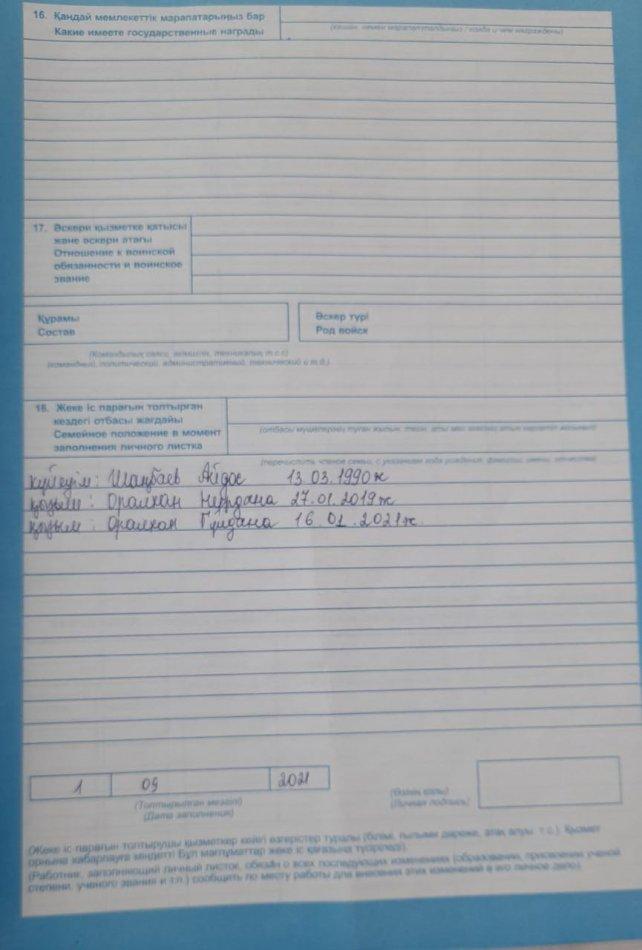 16. Қандай мемлекеттік марапатарыңыз бар
Какие имеете государственные награды
(қашан, немен марапатталдыңыз / когда и чем награждены)
17. Әскери қызметке қатысы
және әскери атағы
Отношение к воинской
обязанности и воинское
звание
Құрамы
Состав
Әскер түрі
Род войск
(командный, политический, административный, технический и т.д.)
18. Жеке іс парағын толтырған
кездегі отбасы жағдайы
Семейное положение в момент
заполнения личного листка
(перечислить членов семьи, с указанием года рождения, фамилии, имени, отчества)
күйеуім: Шаңбаев Айдос 13.03.1990ж
қызым: Оралхан Нұрдана 27.01.2019ж
қызым: Оралхан Гүлдана 16.01.2021ж.
1 09 2021
(Толтырылған мезгілі)
(Дата заполнения)
(Өзінің қолы)
(Личная подпись)
(Жеке іс парағын толтырушы қызметкер кейінгі өзгерістер туралы (білімі, ғылыми дәреже, атақ алуы т.с.). Қызмет
орнына хабарлауға міндетті Бұл мағлұматтар жеке іс қағазына түсіріледі).
(Работник, заполняющий личный листок, обязан о всех последующих изменениях (образовании, присвоении ученой
степени, ученого звания и т.п.) сообщить по месту работы для внесения этих изменений в его личное дело).